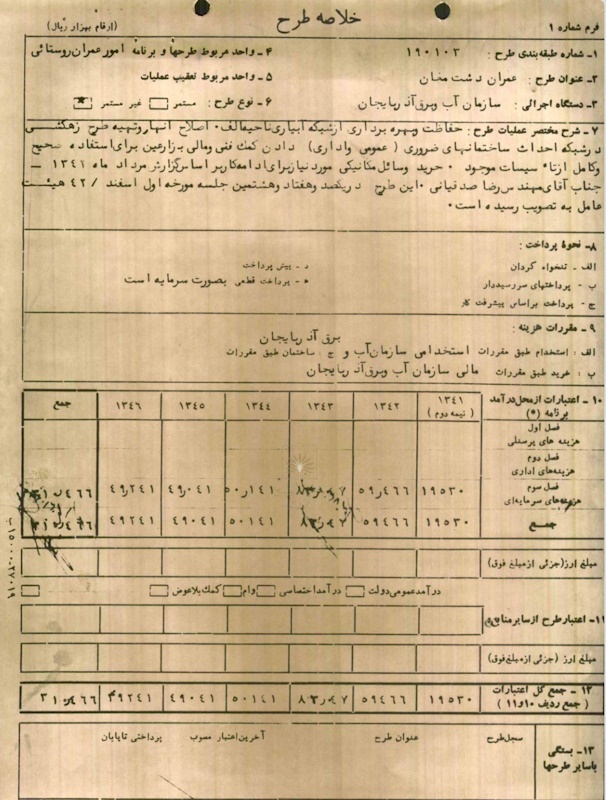 خلاصه طرح
فرم شماره ۱
(ارقام بهزار ریال)
۱- شماره طبقه‌بندی طرح : ۱۹۰۱۰۳
۴- واحد مربوط طرحها و برنامه امور عمران روستائی
۲- عنوان طرح : عمران دشت مغان
۵- واحد مربوط تعقیب عملیات
۳- دستگاه اجرائی : سازمان آب وبرق آذربایجان
۶- نوع طرح : مستمر غیر مستمر
۷- شرح مختصر عملیات طرح : حفاظت وبهره برداری ازشبکه آبیاری ناحیه الف ۰ اصلاح انهار وتهیه طرح زهکشی
درشبکه احداث ساختمانهای ضروری ( عمومی واداری ) دادن کمک فنی ومالی بزارعین برای استفاده صحیح
وکامل ازتاسیسات موجود ۰ خرید وسائل مکانیکی مورد نیاز برای ادامه کار براساس گزارش مرداد ماه ۱۳۴۱ -
جناب آقای مهندس رضا صدقیانی ۰ این طرح دریکصد وهفتاد وهشتمین جلسه مورخه اول اسفند /۴۲ هیئت
عامل به تصویب رسیده است ۰
۸- نحوهٔ پرداخت :
الف - تنخواه گردان
د - پیش پرداخت
ب - پرداختهای سررسیددار
ه - پرداخت قطعی بصورت سرمایه است
ج - پرداخت براساس پیشرفت کار
۹ - مقررات هزینه :
برق آذربایجان
الف : استخدام طبق مقررات استخدامی سازمان آب و ج : ساختمان طبق مقررات
ب : خرید طبق مقررات مالی سازمان آب وبرق آذربایجان
۱۰ - اعتبارات ازمحل درآمد برنامه (*) ۱۳۴۱ (نیمه دوم) ۱۳۴۲ ۱۳۴۳ ۱۳۴۴ ۱۳۴۵ ۱۳۴۶ جمع
فصل اول
هزینه های پرسنلی
فصل دوم
هزینه‌های اداری
فصل سوم
هزینه‌های سرمایه‌ای
۱۹۵۳۰ ۵۹ر۴۶۶ ۵۰ر۱۴۱ ۴۹ر۰۴۱ ۴۹ر۲۴۱
جمع ۱۹۵۳۰ ۵۹۴۶۶ ۵۰۱۴۱ ۴۹۰۴۱ ۴۹۲۴۱
مبلغ ارز (جزئی از مبلغ فوق)
درآمدعمومی دولت درآمد اختصاصی وام کمک بلاعوض
۱۱- اعتبار طرح ازسایر منابع
مبلغ ارز (جزئی از مبلغ فوق)
۱۲ - جمع کل اعتبارات
( جمع ردیف ۱۰و۱۱ )
۱۹۵۳۰ ۵۹۴۶۶ ۸۳ر۰۴۷ ۵۰۱۴۱ ۴۹۰۴۱ ۴۹۲۴۱ ۳۱۰ر۴۶۶
۱۳- بستگی
باسایر طرحها
سجل طرح عنوان طرح آخرین اعتبار مصوب پرداختی تاپایان